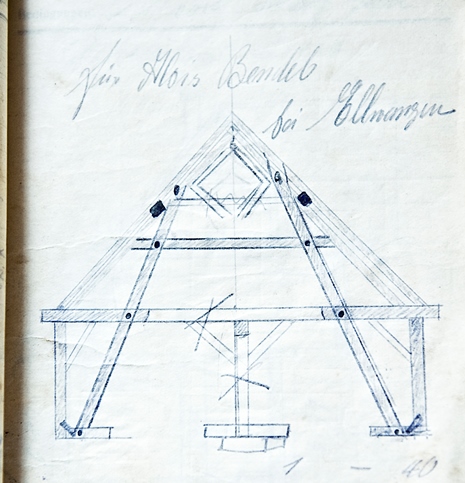 für Alois Bendel
bei Ellwangen
1 – 40